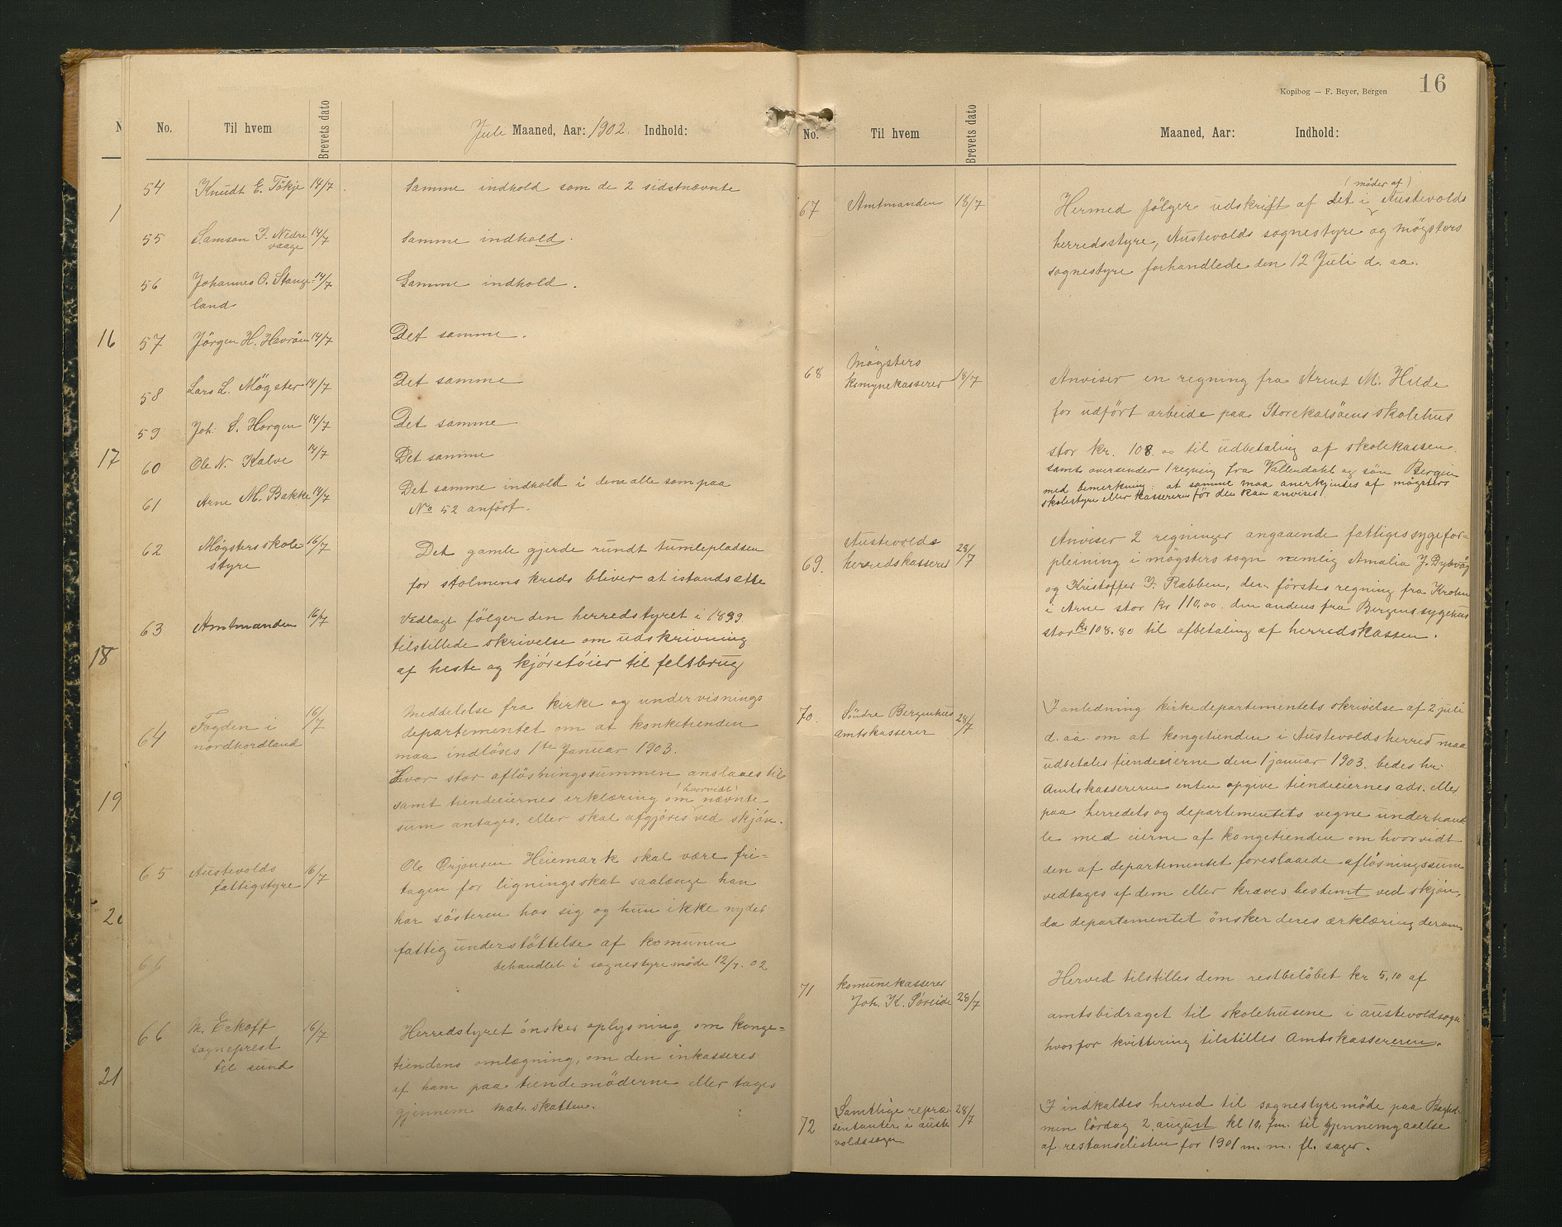 No. Til hvem Brevets dato Juli Maaned, Aar: 1902. Indhold:
54 Knudt E. Tökje 14/7. Samme indhold som de 2 sidstnævnte
55 Samson J. Nedre 14/7 Samme indhold.
vaage
56 Johannes O. Stang- 14/7 Samme indhold.
land
57 Jörgen H. Havröen 14/7 Det samme.
58 Lars L. Møgster 14/7 Det samme
59 Joh. S. Horgen 14/7 Det samme
60 Ole N. Kalve 14/7 Det samme
61 Arne M. Bakke 14/7 Det samme indhold i dene alle som paa
No 52 anfört.
62 Møgsters skole 16/7 Det gamle gjerde rundt tumlepladsen
styre for stolmens kreds bliver at istandsætte
63 Amtmanden 16/7 Vedlagt fölger den herredstyret i 1899
tilstillede skrivelse om udskrivning
af heste og kjöretöier til feltbrug
64 Fogden i 16/7 Meddelelse fra kirke og undervisnings
nordhordland departementet om at konketienden
maa indlöses 1te Januar 1903.
Hvor stor aflösningssummen anslaaes til
samt tiendeeiernes erklæring om (hvorvidt) nævnte
sum antages, eller skal afgjöres ved skjön.
65 Austevolds 16/7 Ole Örjansen Heiemark skal være fri-
fattigstyre tagen for ligningsskat saalænge han
har sösteren hos sig og hun ikke nyder
fattigunderstöttelse af komunen
66 behandlet i sognestyremöde 12/7. 02
66 M. Eckoff 16/7 Herredstyret önsker oplysning om konge-
sogneprest tiendens omlægning, om den inkasseres
til sund af ham paa tiendemöderne eller tages
gjennem matr. skatten.
16
17
18
19
20
21
Kopibog — F. Beyer, Bergen 16
No. Til hvem Brevets dato Maaned, Aar: Indhold:
67 Amtmanden 18/7 Hermed fölger udskrift af det i (möder af) Austevolds
herredsstyre, Austevolds sognestyre og møgsters
sognestyre forhandlede den 12 Juli d. aa.
68 Mögsters
komynekasserer 18/7 Anviser en regning fra Arent M. Hilde
for udfört arbeide paa Storekalsöens skolehus
stor kr. 108.00 til udbetaling af skolekassen
samt oversender 1 regning fra Vallendahl og sön Bergen
med bemerkning: at samme maa anerkjendes af møgsters
skolestyre eller kassereren før den kan anvises
69. Austevolds Anviser 2 regninger angaaende fattiges sygefor-
herredskasserer 28/7 pleining i møgsters sogn nemlig Amalia J. Dybvåg
og Kristoffer J. Rabben, den förstes regning fra Kroken
i Arne stor kr 110,00. den andens fra Bergens sygehus
stor kr 108.80 til afbetaling af herredskassen.
70. Söndre Bergenhus 28/7 I anledning kirkedepartementets skrivelse af 2 juli
amtskasserer d. aa. om at kongetienden i Austevolds herred maa
udbetales tiendeeierne den 1 januar 1903. bedes hr.
Amtskassereren enten opgive tiendeeiernes adr. eller
paa herredets og departementets vegne underhand-
le med eierne af kongetienden om hvorvidt
den af departementet foreslaaede aflösningssum
vedtages af dem eller kræves bestemt ved skjön,
da departementet önsker deres ærklæring derom
71 komunekasserer Herved tilstilles dem restbelöbet kr 5,10 af
Joh. K. Söreide 28/7 amtsbidraget til skolehusene i austevoldsogn
hvorfor kvittering tilstilles Amtskassereren.
72 Samtlige repræ 28/7 I indkaldes herved til sognestyremöde paa
sentanter i auste lördag 2. august kl 10, fm. til gjennemgaaelse
voldssogn af restanselisten for 1901 m. m. fl. sager.